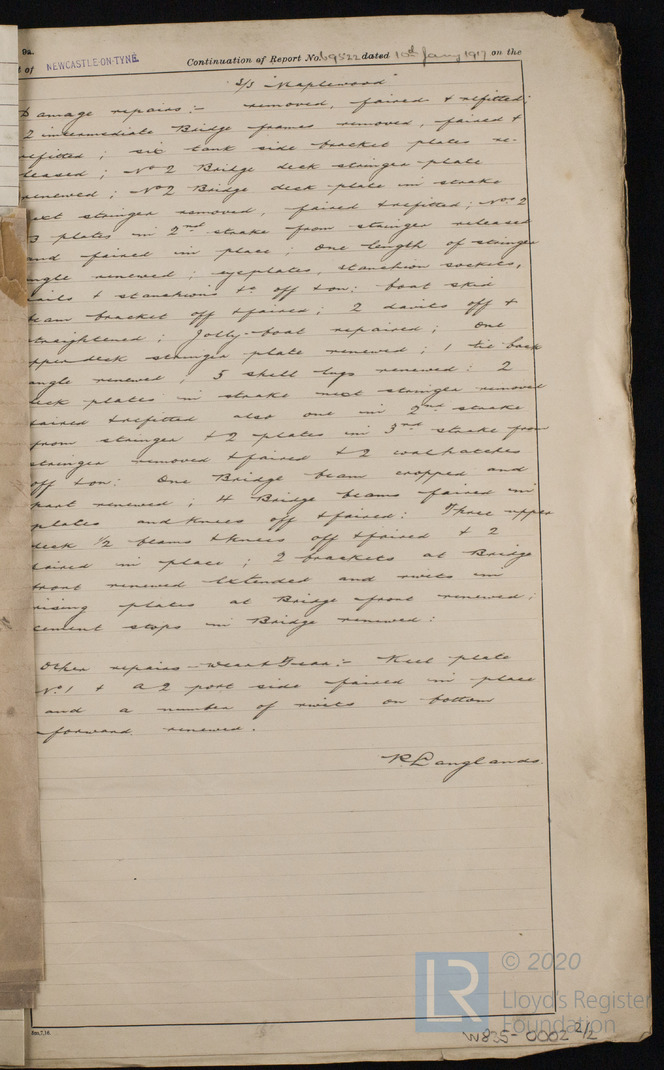 9a.
t of NEWCASTLE-ON-TYNE. Continuation of Report No. 69822 dated 10th Jany 1917 on the
S/S "Maplewood"
Damage repairs:- removed, faired & refitted;
2 intermediate Bridge frames removed, faired &
refitted; six tank side bracket plates re-
leased; No 2 Bridge deck stringer plate
renewed; No 2 Bridge deck plate in strake
next stringer removed, faired & refitted; Nos 2
3 plates in 2nd strake from stringer released
and faired in place; one length of stringer
angle renewed; eyeplates, stanchion sockets,
rails & stanchions &c off & on: boat skid
beam bracket off & faired; 2 davits off &
straightened; Jolly-boat repaired; One
upper deck stringer plate renewed; 1 tie back
angle renewed; 5 shell lugs renewed: 2
deck plates in strake next stringer removed
faired & refitted also one in 2nd strake
from stringer & 2 plates in 3rd strake from
stringer removed & faired & 2 coal hatches
off & on: One Bridge beam cropped and
part renewed; 4 Bridge beams faired in
plates and knees off & faired: Three upper
deck 1/2 beams & knees off & faired & 2
faired in place; 2 brackets at Bridge
front renewed extended and rivets in
rising plates at Bridge front renewed;
cement stops in Bridge renewed:
Other repairs - Wear & Tear:- Keel plate
No 1 & A 2 port side faired in place
and a number of rivets on bottom
forward renewed.
R Langlands.
LR © 2020
Lloyd's Register
Foundation
W835-0002 2/2